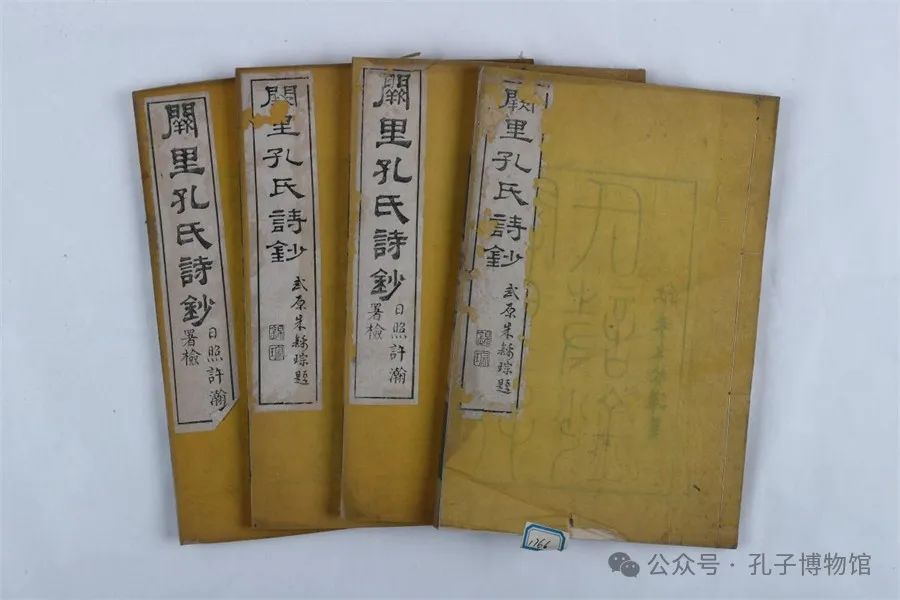 闕里孔氏詩鈔
日照許瀚
署檢
闕里孔氏詩鈔
武原朱縣琮題
闕里孔氏詩鈔
日照許瀚
署檢
闕里孔氏詩鈔
武原朱縣琮題
1766
公众号·孔子博物馆